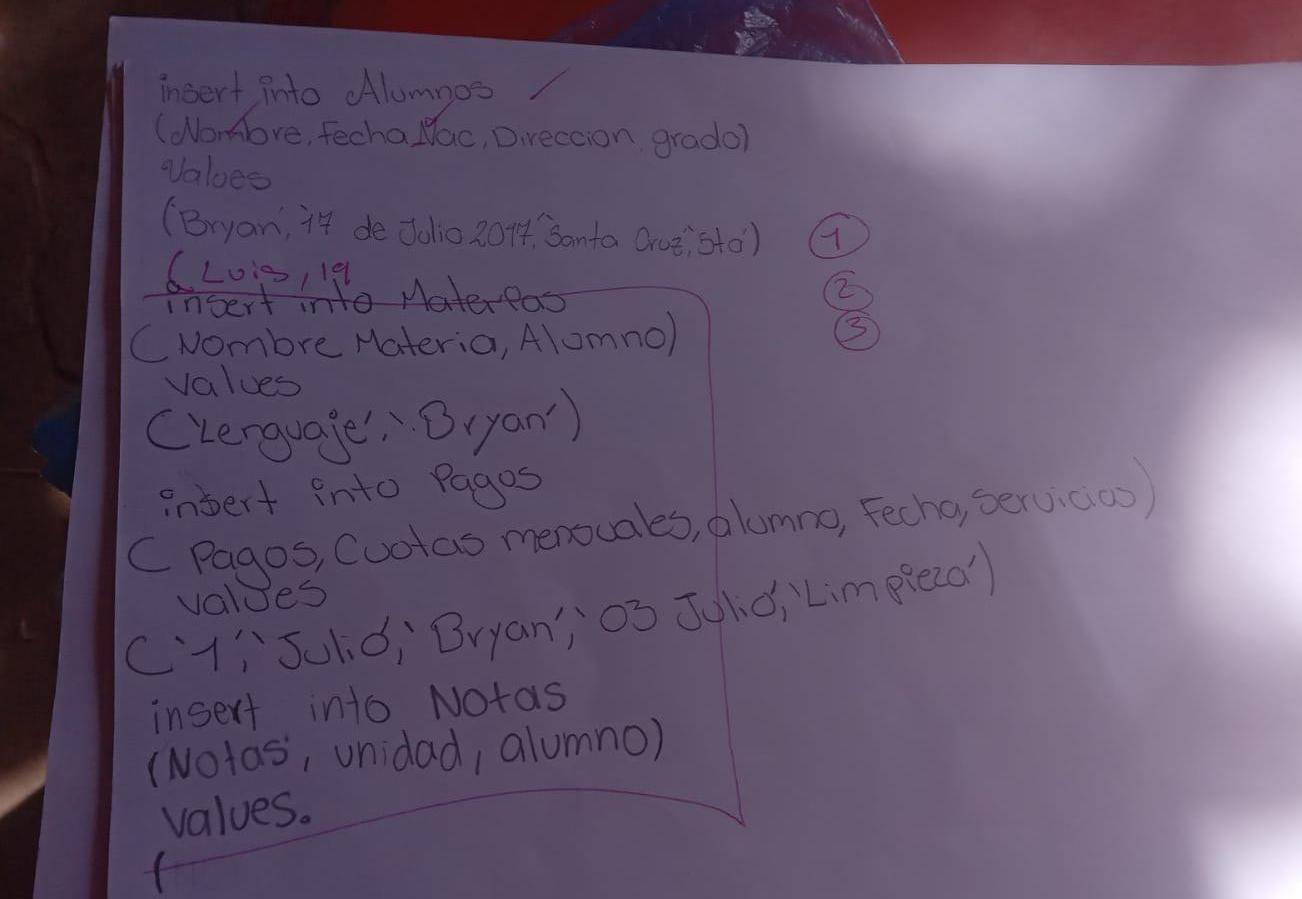 insert into Alumnos
(Nombre, Fecha Nac, Direccion, grado)
Values
(Bryan', 17 de Julio 2017, "Santa Cruz", 5to') ①
( Luis, 19 ②
insert into Materias ③
( Nombre Materia, Alumno)
values
('Lenguaje', 'Bryan')
insert into Pagos
( Pagos, Cuotas mensuales, alumno, Fecha, Servicios)
values
('1', 'Julio', 'Bryan', '03 Julio', 'Limpieza')
insert into Notas
(Notas, unidad, alumno)
values.
(